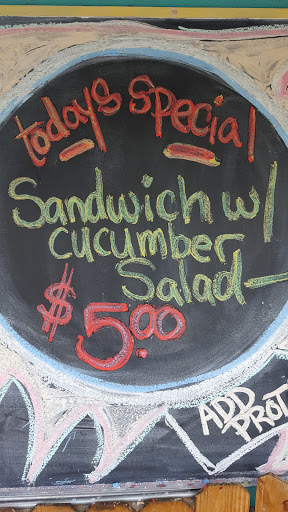 todays special
Sandwich w/
cucumber
Salad
$5.00
ADD